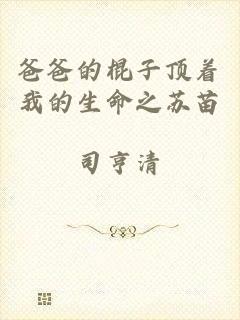 爸爸的棍子顶着
我的生命之苏苗
司亨清